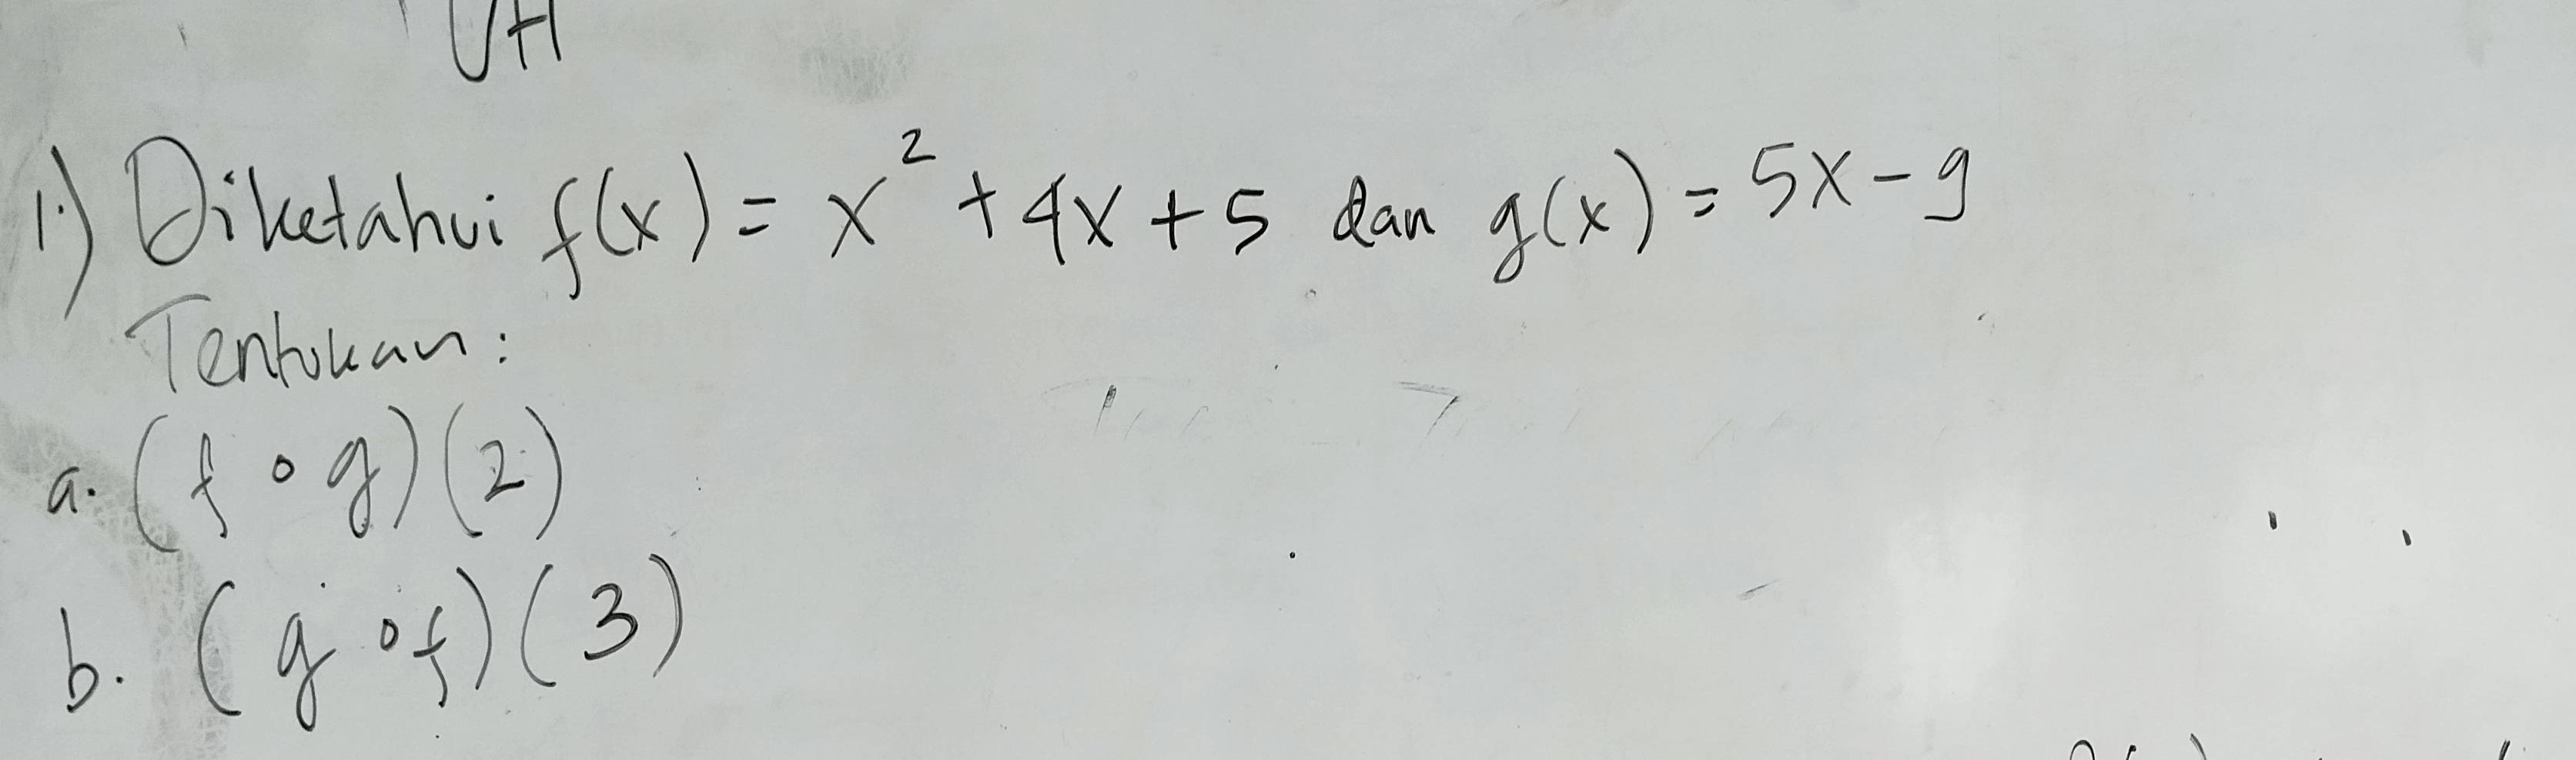 UH
1.) Diketahui f(x) = x² + 4x + 5 dan g(x) = 5x - 9
Tentukan:
a. (f o g)(2)
b. (g o f)(3)